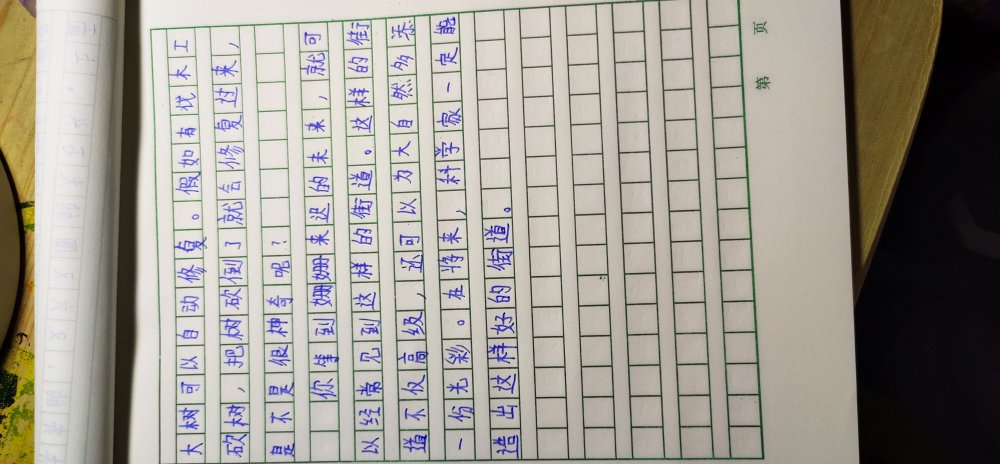 大树可以自动修复。假如有伐木工
砍树，把树砍倒了就会修复过来，
是不是很神奇呢？
你等到姗姗来迟的未来，就可
以经常见到这样的街道。这样的街
道不仅高级，还可以为大自然多添
一份光彩。在将来，科学家一定能
捂出这样好的街道。
第 页